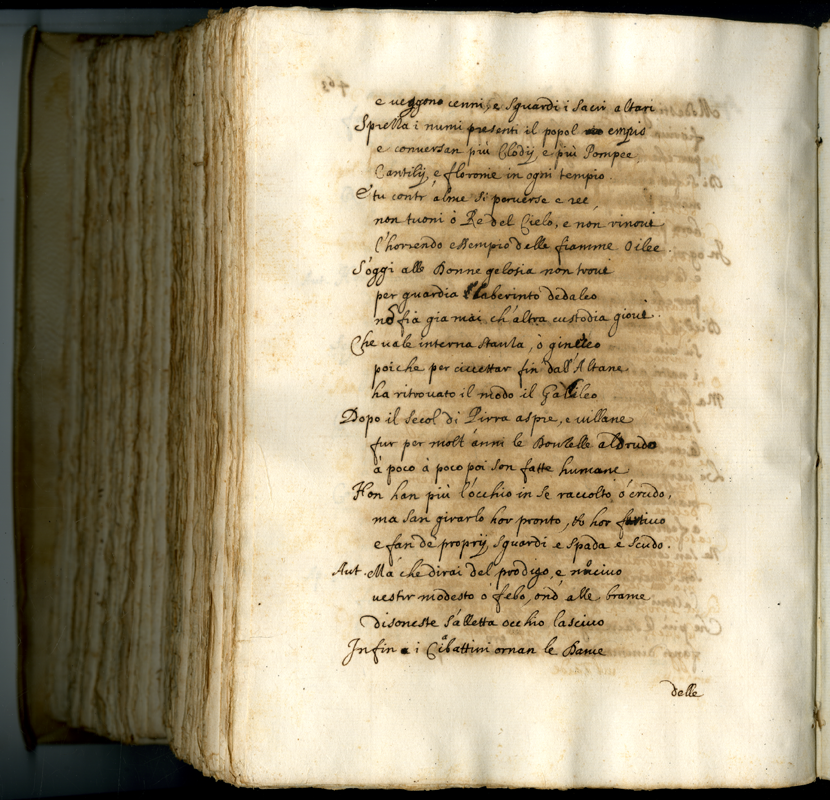 e veggono cenni, e sguardi i sacri altari
Sprezza i numi presenti il popol empio
e conversan più Clodij, e più Pompee,
Cantilij, e floronie in ogni tempio.
E tu contr' alme si perverse e ree,
non tuoni ò Re del Cielo, e non rinovi
l'horrendo essempio delle fiamme Oilee.
S'oggi alle Donne gelosia non trovi
per guardia laberinto dedaleo
nõ fia gia mai ch'altra custodia giovi.
Che vale interna stanza, ò gineceo
poiche per civettar fin dall'Altane
ha ritrovato il modo il Galileo
Dopo il secol di Pirra aspre, e villane
fur per molt'anni le Donzelle al drudo
à poco à poco poi son fatte humane
Non han più l'occhio in se raccolto, ò crudo,
ma san girarlo hor pronto, & hor furtivo
e fan de proprij sguardi e spada e scudo.
Aut. Ma che dirai del prodigo, e nocivo
vestir modesto ò febo, ond' alle brame
disoneste s'alletta occhio lascivo
Infin i Ciabattini ornan le Dame
delle